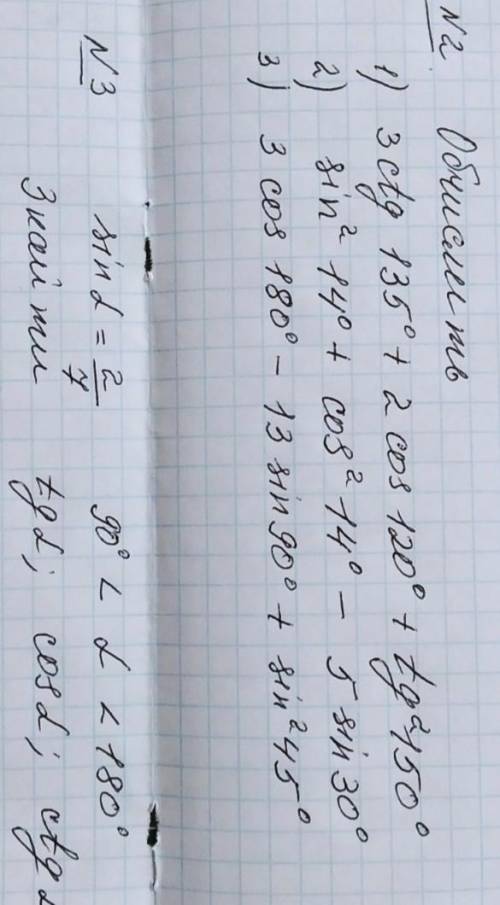 N2 Обчисліть
1) 3 ctg 135° + 2 cos 120° + tg² 150°
2) sin² 14° + cos² 14° - 5 sin 30°
3) 3 cos 180° - 13 sin 90° + sin² 45°
N3 sin α = 2/7 90° < α < 180°
Знайти tg α; cos α; ctg α